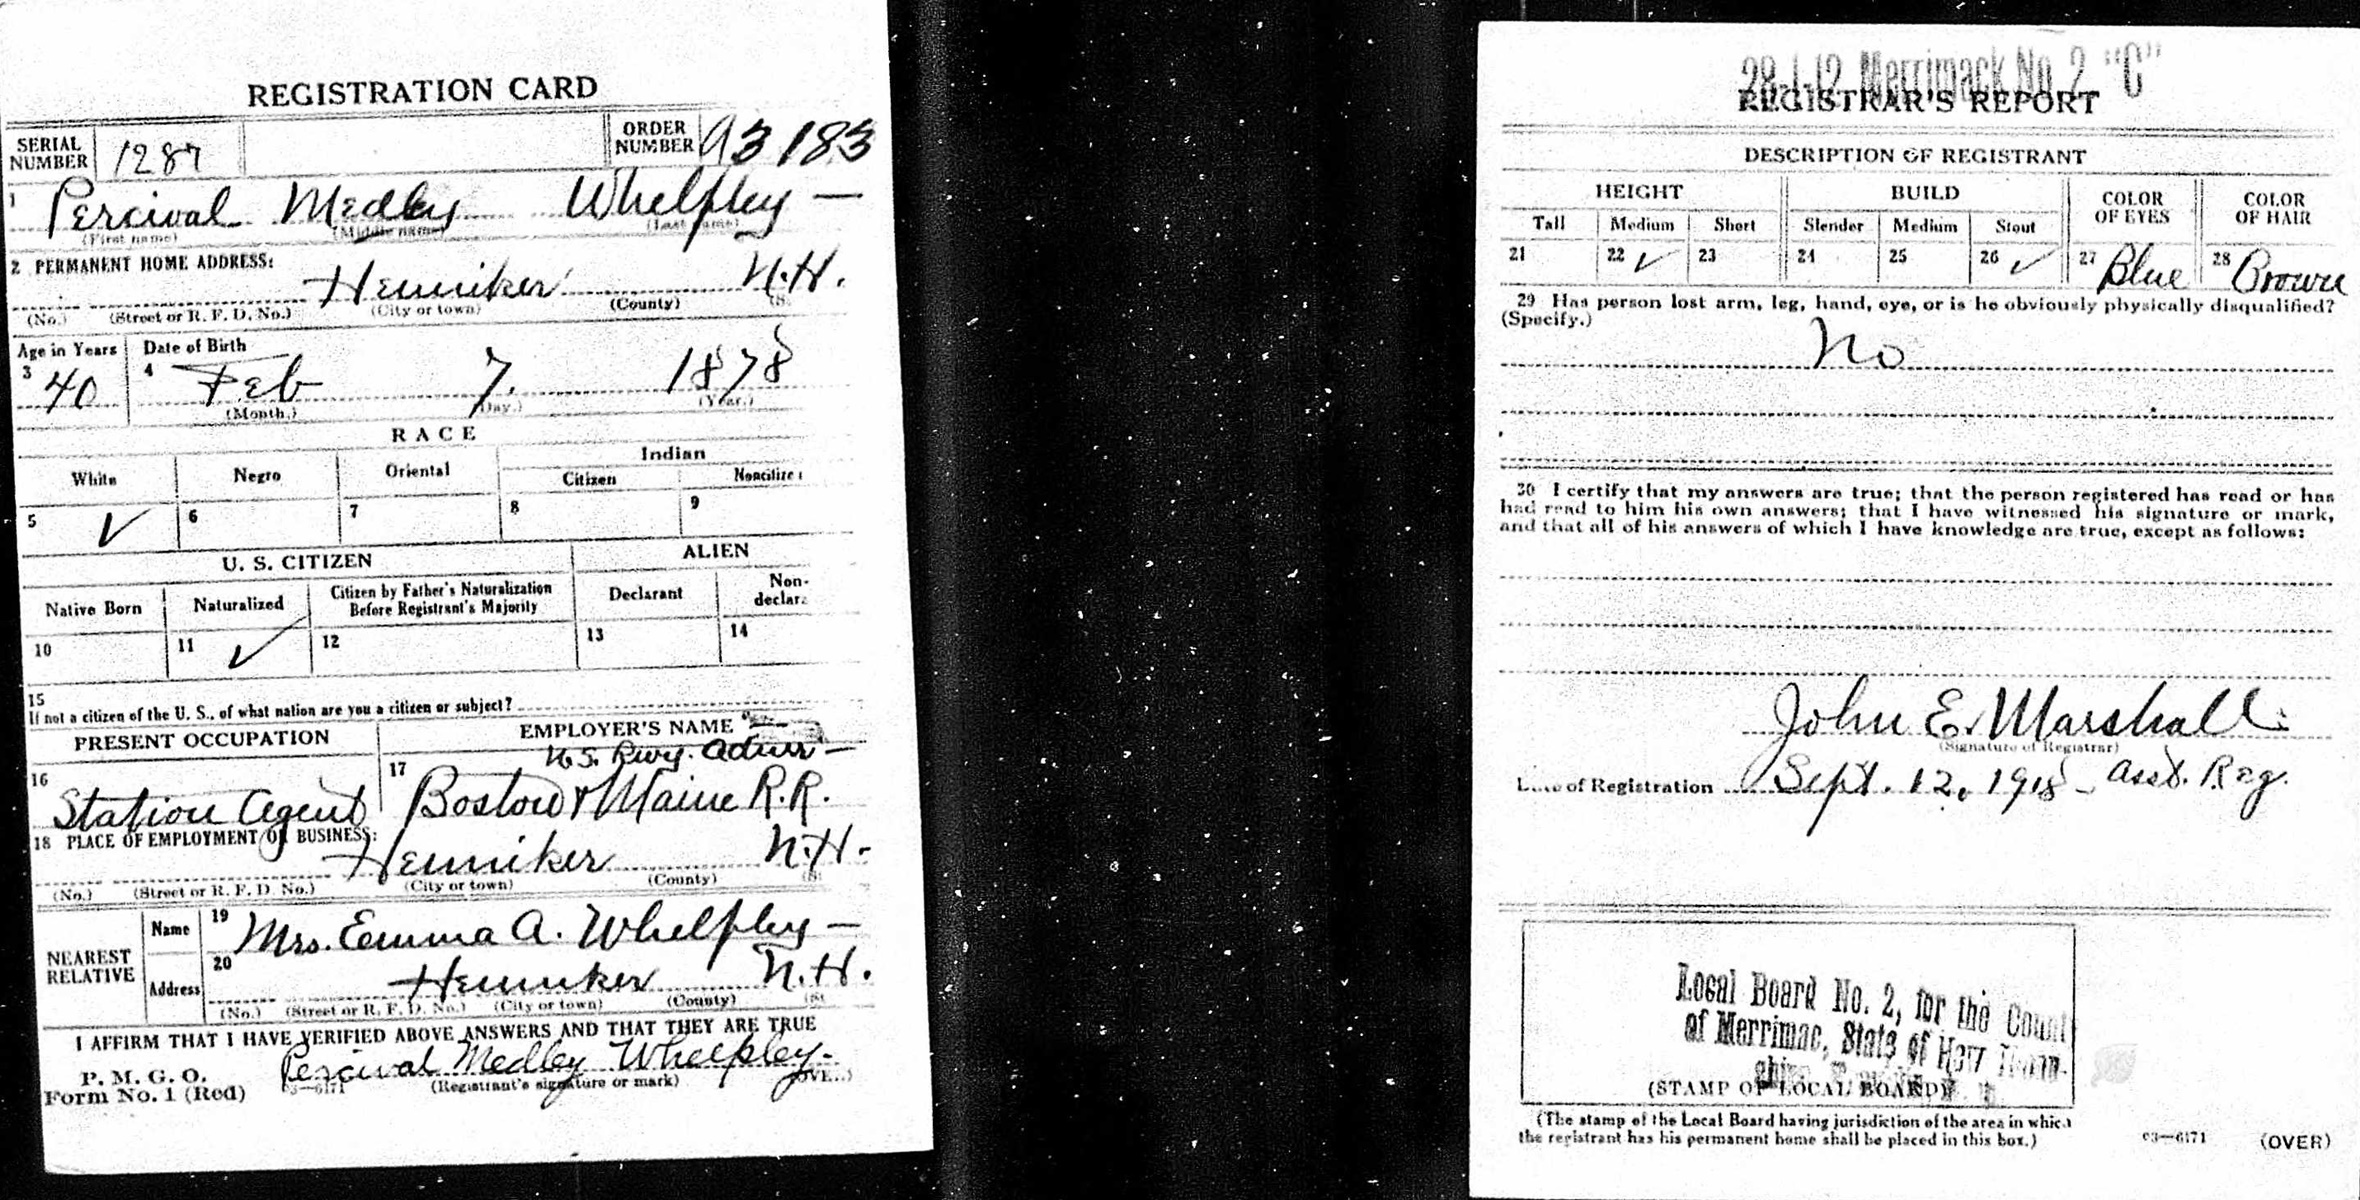 REGISTRATION CARD
SERIAL NUMBER 1287 ORDER NUMBER A3183
1 Percival Medley Whelpley —
(First name) (Middle name) (Last name)
2 PERMANENT HOME ADDRESS:
Henniker N.H.
(No.) (Street or R. F. D. No.) (City or town) (County) (S
Age in Years Date of Birth
3 40 4 Feb 7. 1878
(Month.) (Day.) (Year.)
RACE
White Negro Oriental Indian
Citizen Noncitize
5 ✓ 6 7 8 9
U. S. CITIZEN ALIEN
Native Born Naturalized Citizen by Father's Naturalization Before Registrant's Majority Declarant Non-declar
10 11 ✓ 12 13 14
15
If not a citizen of the U. S., of what nation are you a citizen or subject?
PRESENT OCCUPATION EMPLOYER'S NAME
U.S. Rwy. Admr —
16 Station Agent 17 Boston & Maine R.R.
18 PLACE OF EMPLOYMENT OR BUSINESS:
Henniker N.H.
(No.) (Street or R. F. D. No.) (City or town) (County) (S
NEAREST RELATIVE Name 19 Mrs. Emma A. Whelpley —
Address 20 Henniker N.H.
(No.) (Street or R. F. D. No.) (City or town) (County) (St
I AFFIRM THAT I HAVE VERIFIED ABOVE ANSWERS AND THAT THEY ARE TRUE
P. M. G. O.
Form No. 1 (Red) Percival Medley Whelpley.
03—6171 (Registrant's signature or mark) (OVER)
28-1-12 Merrimack No. 2 "C"
REGISTRAR'S REPORT
DESCRIPTION OF REGISTRANT
HEIGHT BUILD COLOR OF EYES COLOR OF HAIR
Tall Medium Short Slender Medium Stout
21 22 ✓ 23 24 25 26 ✓ 27 Blue 28 Brown
29 Has person lost arm, leg, hand, eye, or is he obviously physically disqualified?
(Specify.)
No
30 I certify that my answers are true; that the person registered has read or has
had read to him his own answers; that I have witnessed his signature or mark,
and that all of his answers of which I have knowledge are true, except as follows:
John E. Marshall
(Signature of Registrar)
Date of Registration Sept. 12, 1918 - Asst. Reg.
Local Board No. 2, for the Count
of Merrimac, State of New Hamp-
(STAMP OF LOCAL BOARD)
(The stamp of the Local Board having jurisdiction of the area in which
the registrant has his permanent home shall be placed in this box.)
03—6171 (OVER)